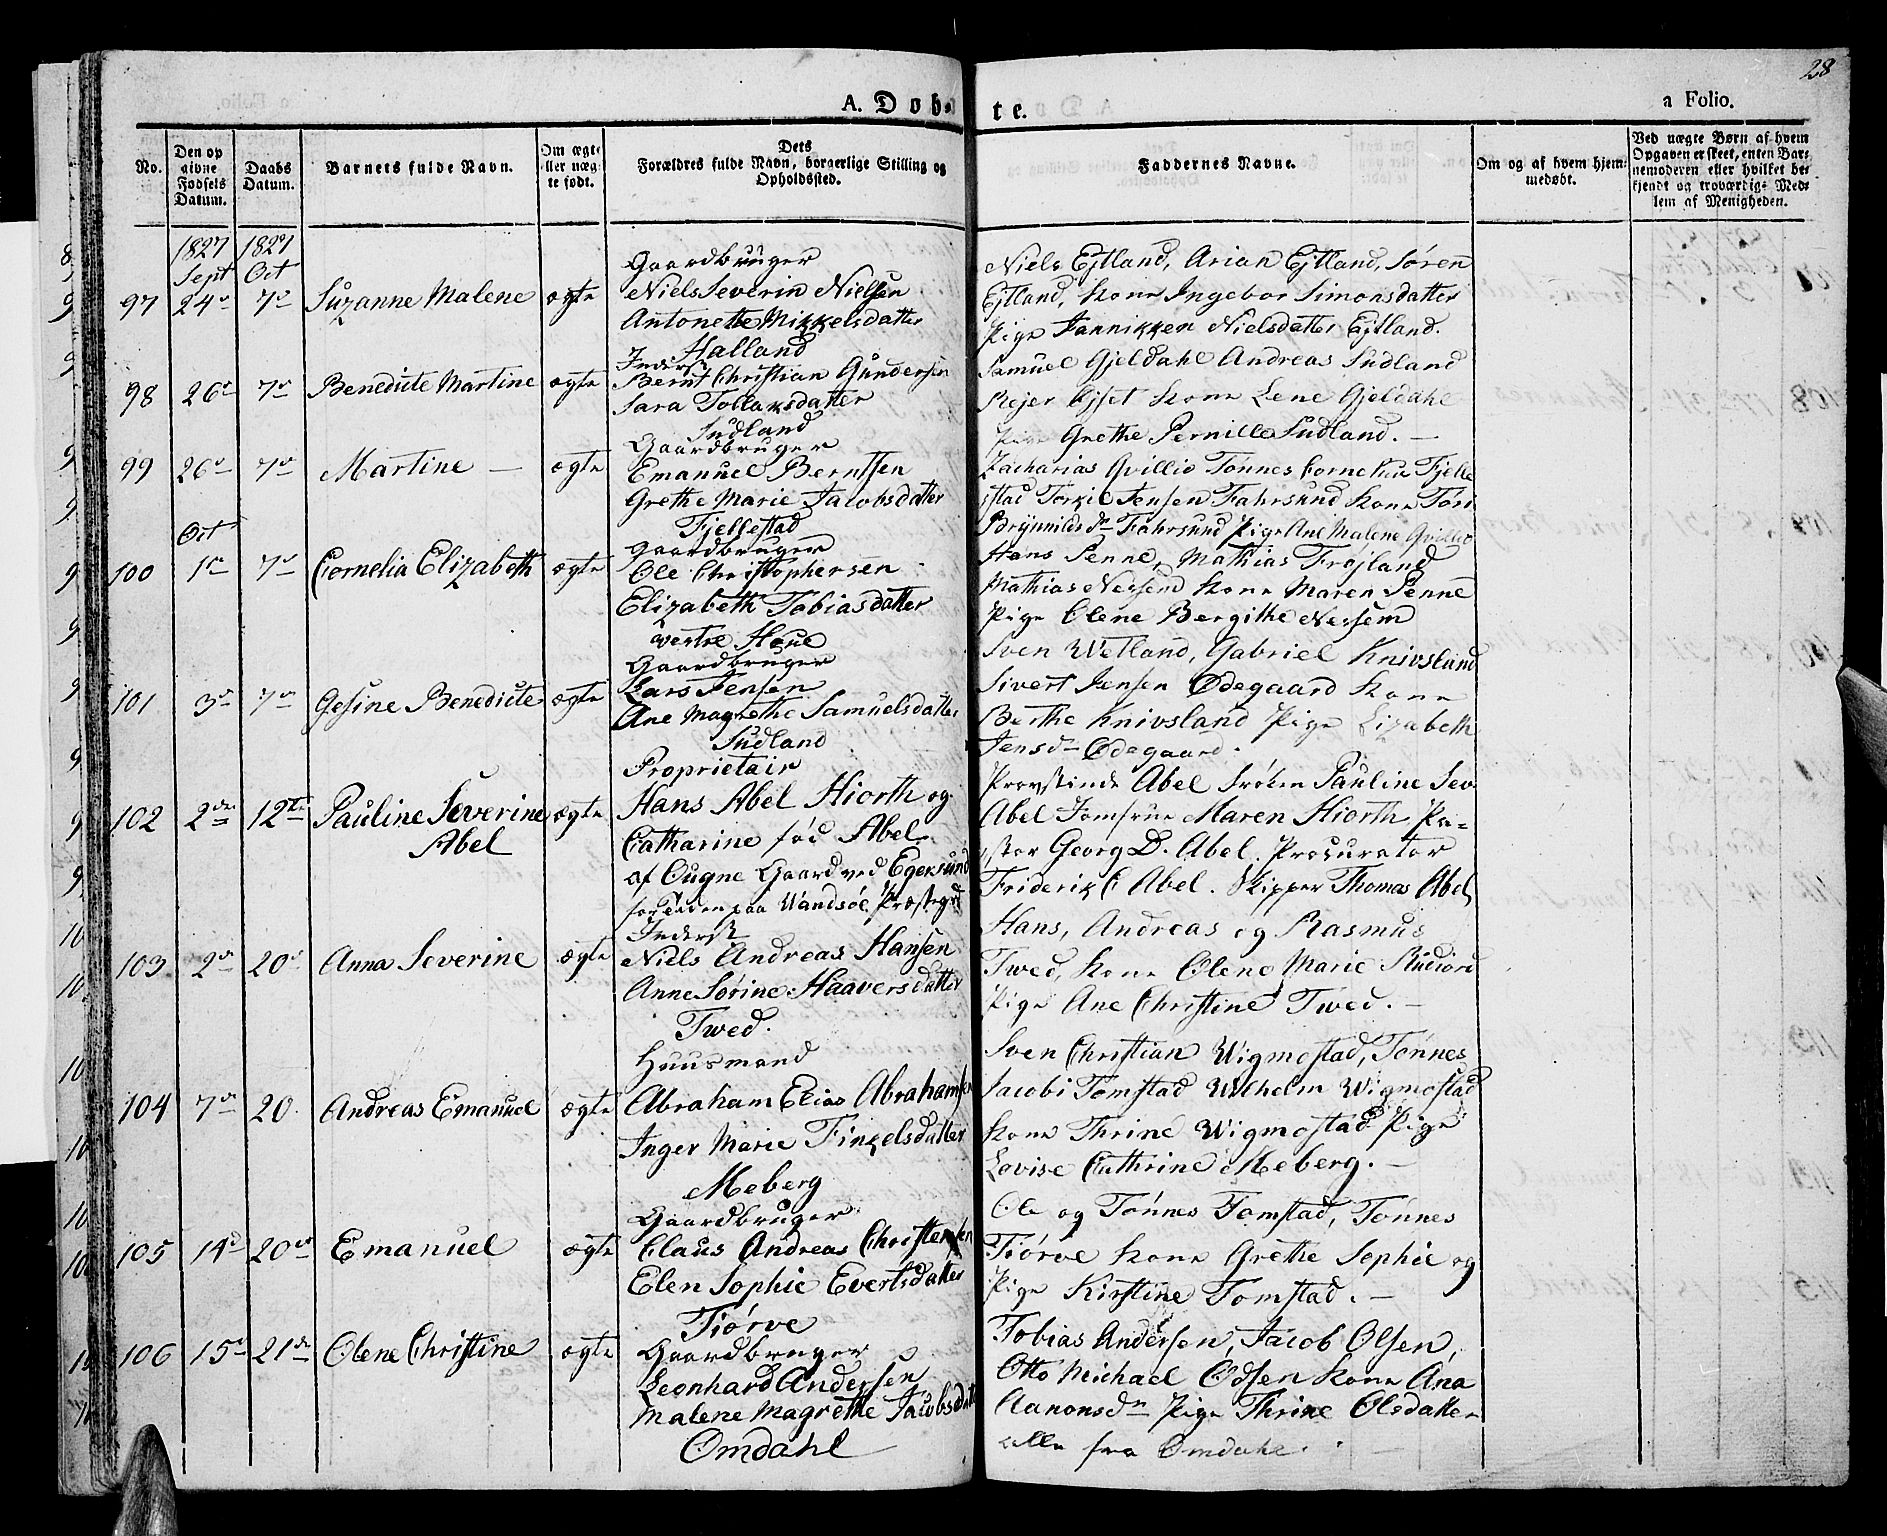 28
A. Døb
te.
a Folio.
No.
Den op
givne
Fødsels
Datum.
Daabs
Datum.
Barnets fulde Navn.
Om ægte
eller uæg-
te født.
Dets
Forældres fulde Navn, borgerlige Stilling og
Opholdssted.
Faddernes Navne.
Om og af hvem hjem-
medøbt.
Ved uægte Børn af hvem
Opgaven er skeet, enten Bar-
nemoderen eller hvilket be-
kjendt og troværdig Med-
lem af Menigheden.
1827 1827
Sept Oct
97 24de 7de Suzanne Malene ægte
Gaardbruger
Niels Severin Nielsen
Antonette Mikkelsdatter
Halland
Niels Ejtland, Arian Ejtland, Søren
Ejtland, Kone Ingebor Simonsdatter
Pige Jannikken Nielsdatter Ejtland.
98 26de 7de Benedicte Martine ægte
Inderst
Bernt Christian Gundersen
Sara Tollaksdatter
Sudland
Samuel Gjeldahl Andreas Sudland
Rejer Kone Lene Gjeldahl
Pige Grethe Pernille Sudland.
99 26de 7de Martine ægte
Gaardbruger
Emanuel Berntsen
Grethe Marie Jacobsdatter
Fjellestad
Zacharias Qvillio Tønnes Fjelle
stad Torkil Jensen Fahrsund Kone
Fahrsund Pige Ane Malene Qvillio
Oct
100 1te 7de Cornelia Elizabeth ægte
Gaardbruger
Ole Christophersen
Elizabeth Tobiasdatter
vestre Haue
Hans Penne, Mathias Frøjland
Mathias Kone Maren Penne
Pige Olene Bergithe
101 3de 7de Gesine Benedicte ægte
Gaardbruger
Lars Jensen
Ane Magrethe Samuelsdatter
Sudland
Sven Wetland, Gabriel Knivsland
Sivert Jensen Ødegaard Kone
Berthe Knivsland Pige Lizabeth
Jensdr Ødegaard.
102 2den 12te Pauline Severine ægte
Abel
Proprietair
Hans Abel Hiorth og
Catharine fød Abel
af Ougne Gaard ved Egersund
for Tiden paa Wandsøe Præstegrd
Provstinde Abel Frøken Pauline Sev
Abel Jomfrue Maren Hiorth Pa-
stor Georg D. Abel. Procurator
Friderik C Abel. Skipper Thomas Abel
103 2de 20de Anna Severine ægte
Inderst
Niels Andreas Hansen
Anne Sørine Haaversdatter
Twed.
Hans, Andreas og Rasmus
Twed, Kone Olene Marie
Pige Ane Christine Twed.
104 7de 20. Andreas Emanuel ægte
Huusmand
Abraham Elias Abrahamsen
Inger Marie Finkelsdatter
Meberg
Sven Christian Wigmostad, Tønnes
Jacobi Tomstad Wilhelm Wigmostad
Kone Thrine Wigmostad Pige
Lovise Cathrine Meberg.
105 14de 20de Emanuel ægte
Gaardbruger
Claus Andreas Christensen
Elen Sophie Evertsdatter
Tiørve
Ole og Tønnes Tomstad, Tønnes
Tiørve Kone Grethe Sophie og
Pige Kirstine Tomstad.
106 15de 21de Olene Christine ægte
Gaardbruger
Leonhard Andersen
Malene Magrethe Jacobsdatter
Omdahl
Tobias Andersen, Jacob Olsen,
Otto Michael Odsen Kone Ana
Aanonsdr Pige Thrine Olsdatter
alle fra Omdahl.